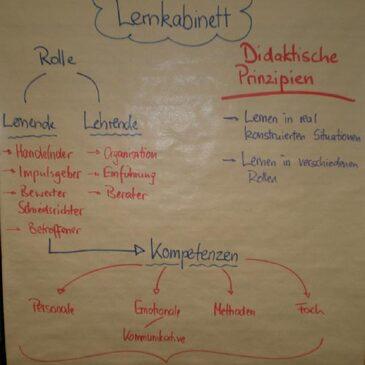 Lernkabinett
Rolle
Lernende
→ Handelnder
→ Impulsgeber
→ Bewerter
Schiedsrichter
→ Betroffener
Lehrende
→ Organisation
→ Einführung
→ Berater
Didaktische
Prinzipien
→ Lernen in real
konstruierten Situationen
→ Lernen in verschiedenen
Rollen
Kompetenzen
Personale
Emotionale
Kommunikative
Methoden
Fach